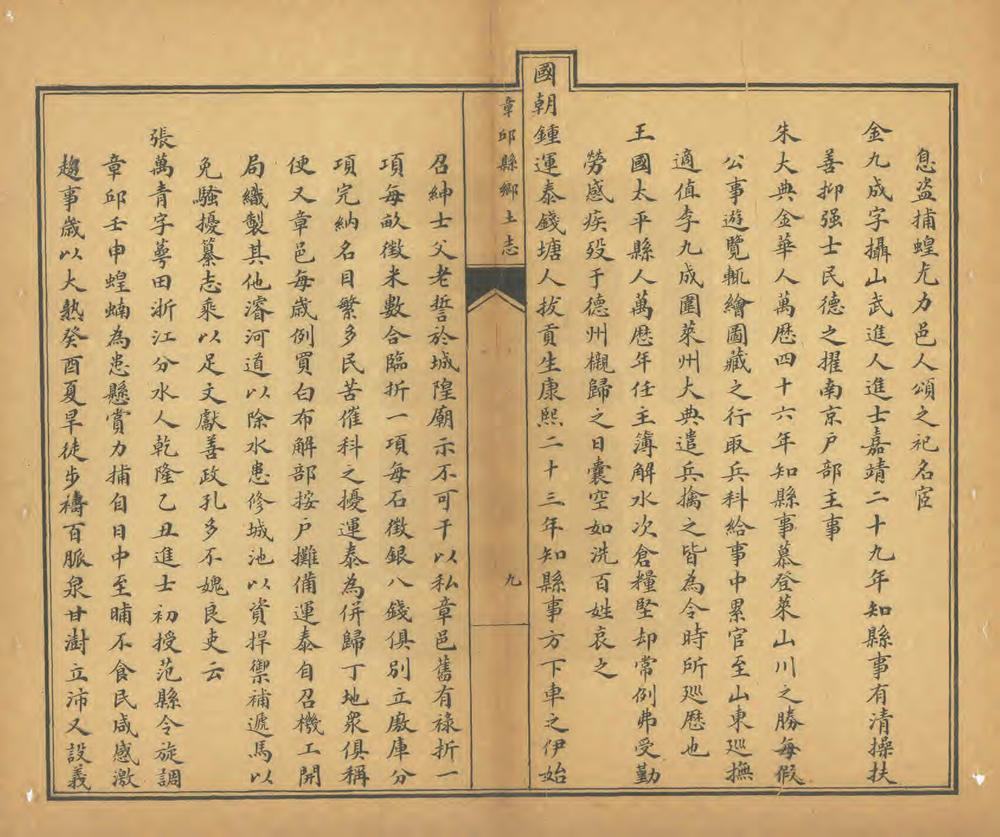 息盜捕蝗尤力邑人頌之祀名宦
金九成字攝山武進人進士嘉靖二十九年知縣事有清操扶
善抑强士民德之擢南京户部主事
朱大典金華人萬歷四十六年知縣事慕登萊山川之勝每假
公事遊覽輒繪圖藏之行取兵科給事中累官至山東巡撫
適值李九成圍萊州大典遣兵擒之皆為令時所巡歷也
王國太平縣人萬歷年任主簿解水次倉糧堅却常例弗受勤
勞感疾殁于德州櫬歸之日囊空如洗百姓哀之
國朝鍾運泰錢塘人拔貢生康熙二十三年知縣事方下車之伊始
章邱縣鄉土志
九
召紳士父老誓於城隍廟示不可干以私章邑舊有祿折一
項每畝徵米數合臨折一項每石徵銀八錢俱別立廒庫分
項完納名目繁多民苦催科之擾運泰為併歸丁地衆俱稱
便又章邑每歲例買白布解部按戶攤備運泰自召機工開
局織製其他濬河道以除水患修城池以資捍禦補遞馬以
免騷擾纂志乘以足文獻善政孔多不媿良吏云
張萬青字蕚田浙江分水人乾隆乙丑進士初授范縣令旋調
章邱壬申蝗蝻為患懸賞力捕自日中至晡不食民咸感激
趨事歲以大熟癸酉夏旱徒步禱百脈泉甘澍立沛又設義